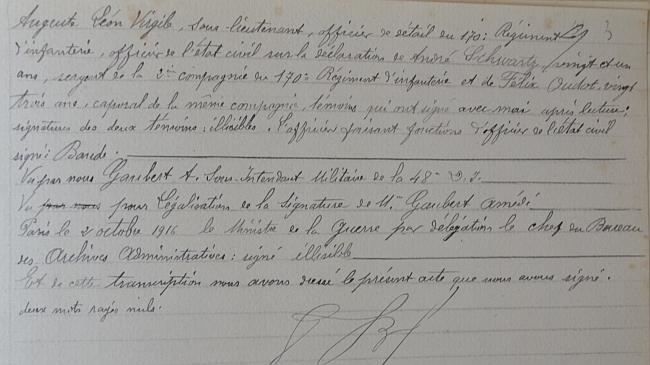 Auguste Léon Virgile, sous-lieutenant, officier de détail du 170e Régiment
d'infanterie, officier de l'état civil sur la déclaration de André Schwartz, vingt et un
ans, sergent de la 2me compagnie du 170e Régiment d'infanterie et de Félix Oudot, vingt
trois ans, caporal de la même compagnie, témoins qui ont signé avec moi après lecture;
signatures des deux témoins: illisibles. L'officier faisant fonctions d'officier de l'état civil
signé: Barde.
Vu par nous Gaubert A. Sous-Intendant Militaire de la 48e D.I.
Vu par nous pour Légalisation de la Signature de Mr Gaubert Amédé
Paris le 2 octobre 1916 le Ministre de la Guerre par délégation le chef du Bureau
des Archives Administratives: signé illisible
Et de cette transcription nous avons dressé le présent acte que nous avons signé.
deux mots rayés nuls.